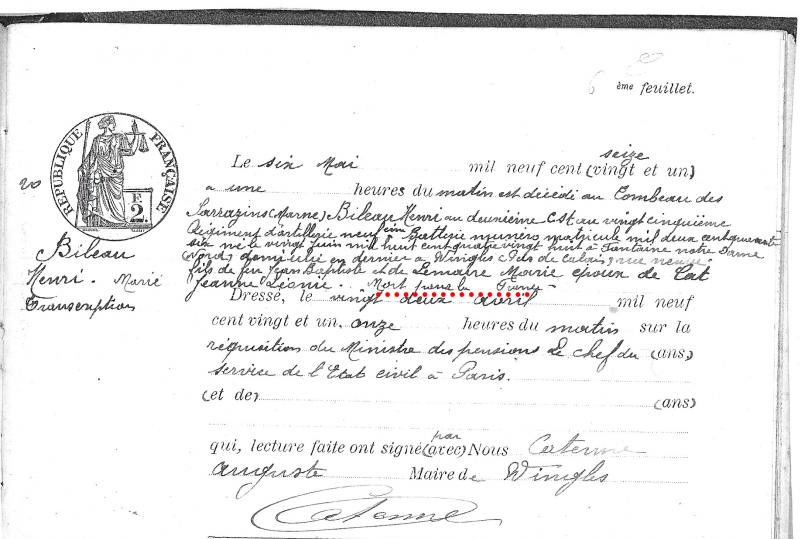 6 ème feuillet.
RÉPUBLIQUE FRANÇAISE
F
2
20
Bileau
Henri. Marié
Transcription
seize
Le six Mai mil neuf cent (vingt et un)
à une heures du matin est décédé au Tombeau des
Sarrazins (Marne) Bileau Henri au deuxième C st au vingt cinquième
Régiment d'artillerie neuf ème Batterie numéro matricule mil deux cent quarante
six né le vingt juin mil huit cent quatre vingt huit à Fontaine notre Dame
(Nord) domicilié en dernier à Wingles (Pas de Calais) rue neuve
fils de feu Jean Baptiste et de Lemaire Marie époux de Cat
Jeanne Léonie. Mort pour la France
Dressé, le vingt deux avril mil neuf
cent vingt et un, onze heures du matin sur la
réquisition du Ministre des pensions Le chef du (ans)
service de l'Etat civil à Paris.
(et de) (ans)
par
qui, lecture faite ont signé (avec) Nous Caterme
Auguste Maire de Wingles
Caterme